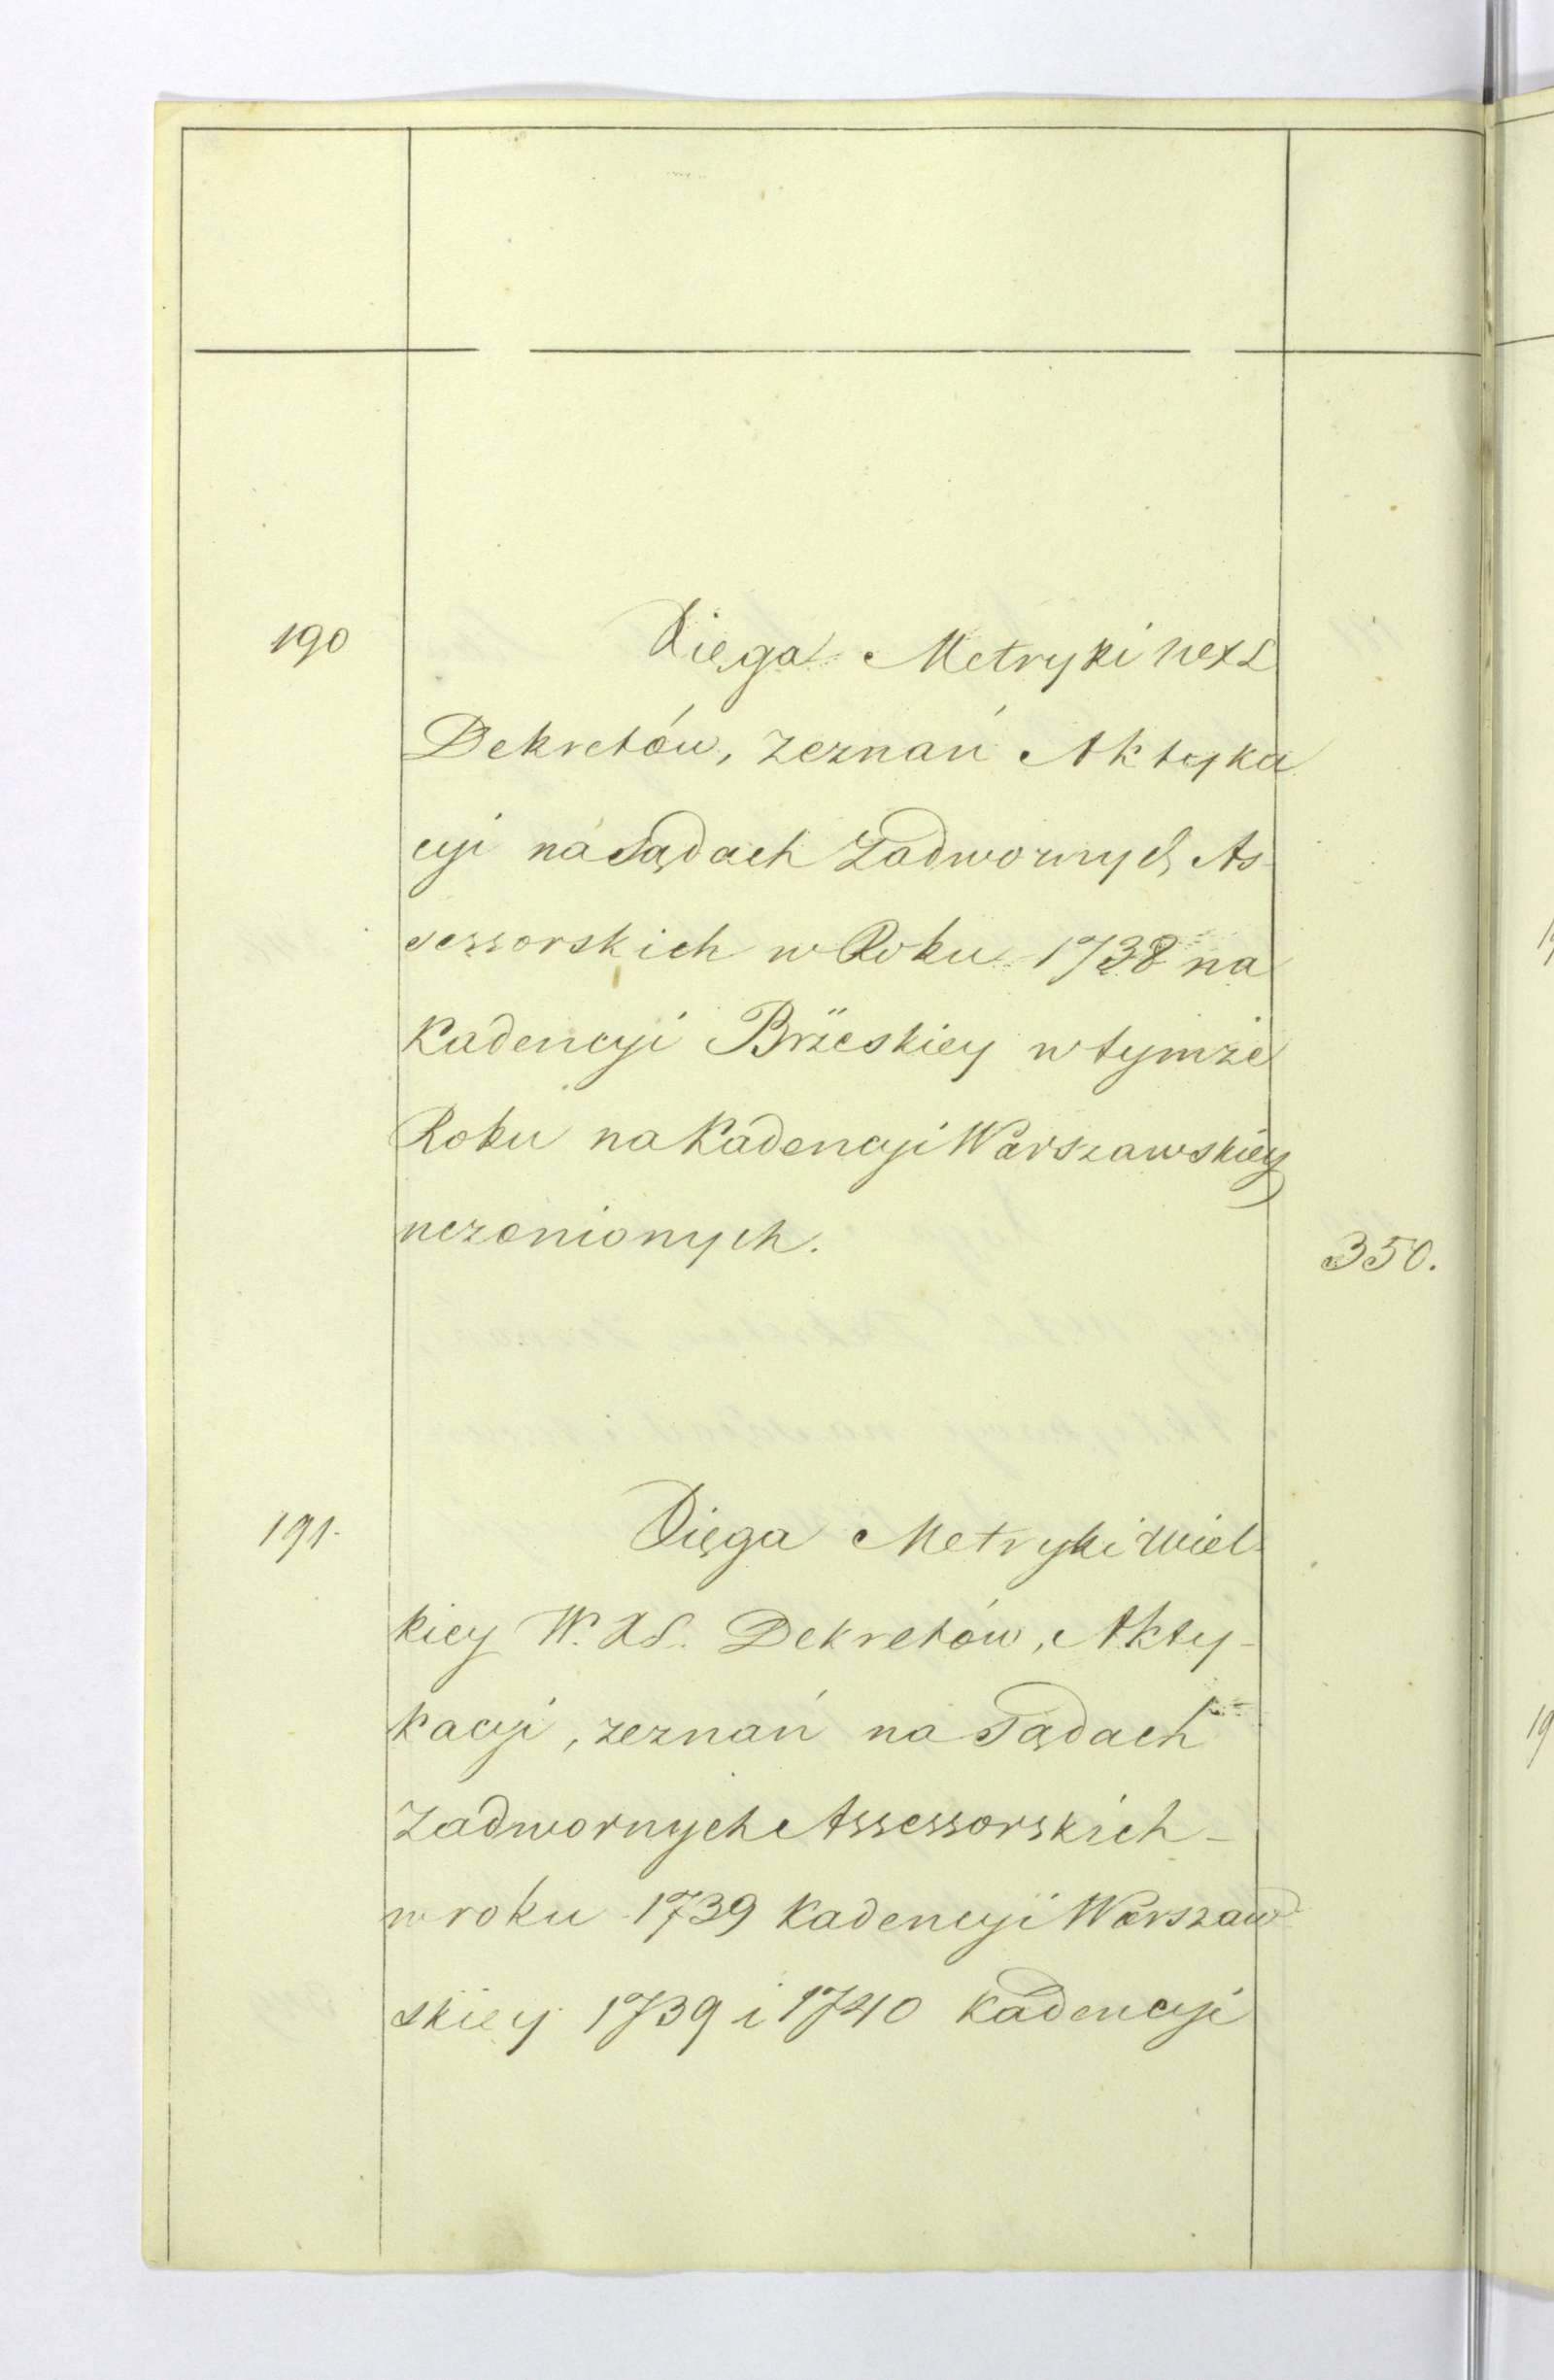 190 Xięga Metryki WXL
Dekretów, zeznań Aktyka
cyi na Sądach Zadwornych As-
sessorskich w Roku 1738 na
Kadencyi Brzeskiey w tymże
Roku na Kadencyi Warszawskiey
uczonionych.
350.
191. Xięga Metryki Wiel-
kiey W. X L. Dekretów, Akty-
kacyi, zeznań na Sądach
Zadwornych Assessorskich-
w roku 1739 Kadencyi Warszaw
skiey 1739 i 1740 Kadencyi